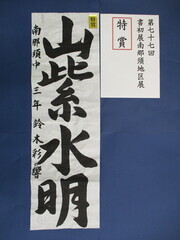 第七十七回
書初展南那須地区展
特賞
特賞
山紫水明
南那須中 三年 鈴木彩響